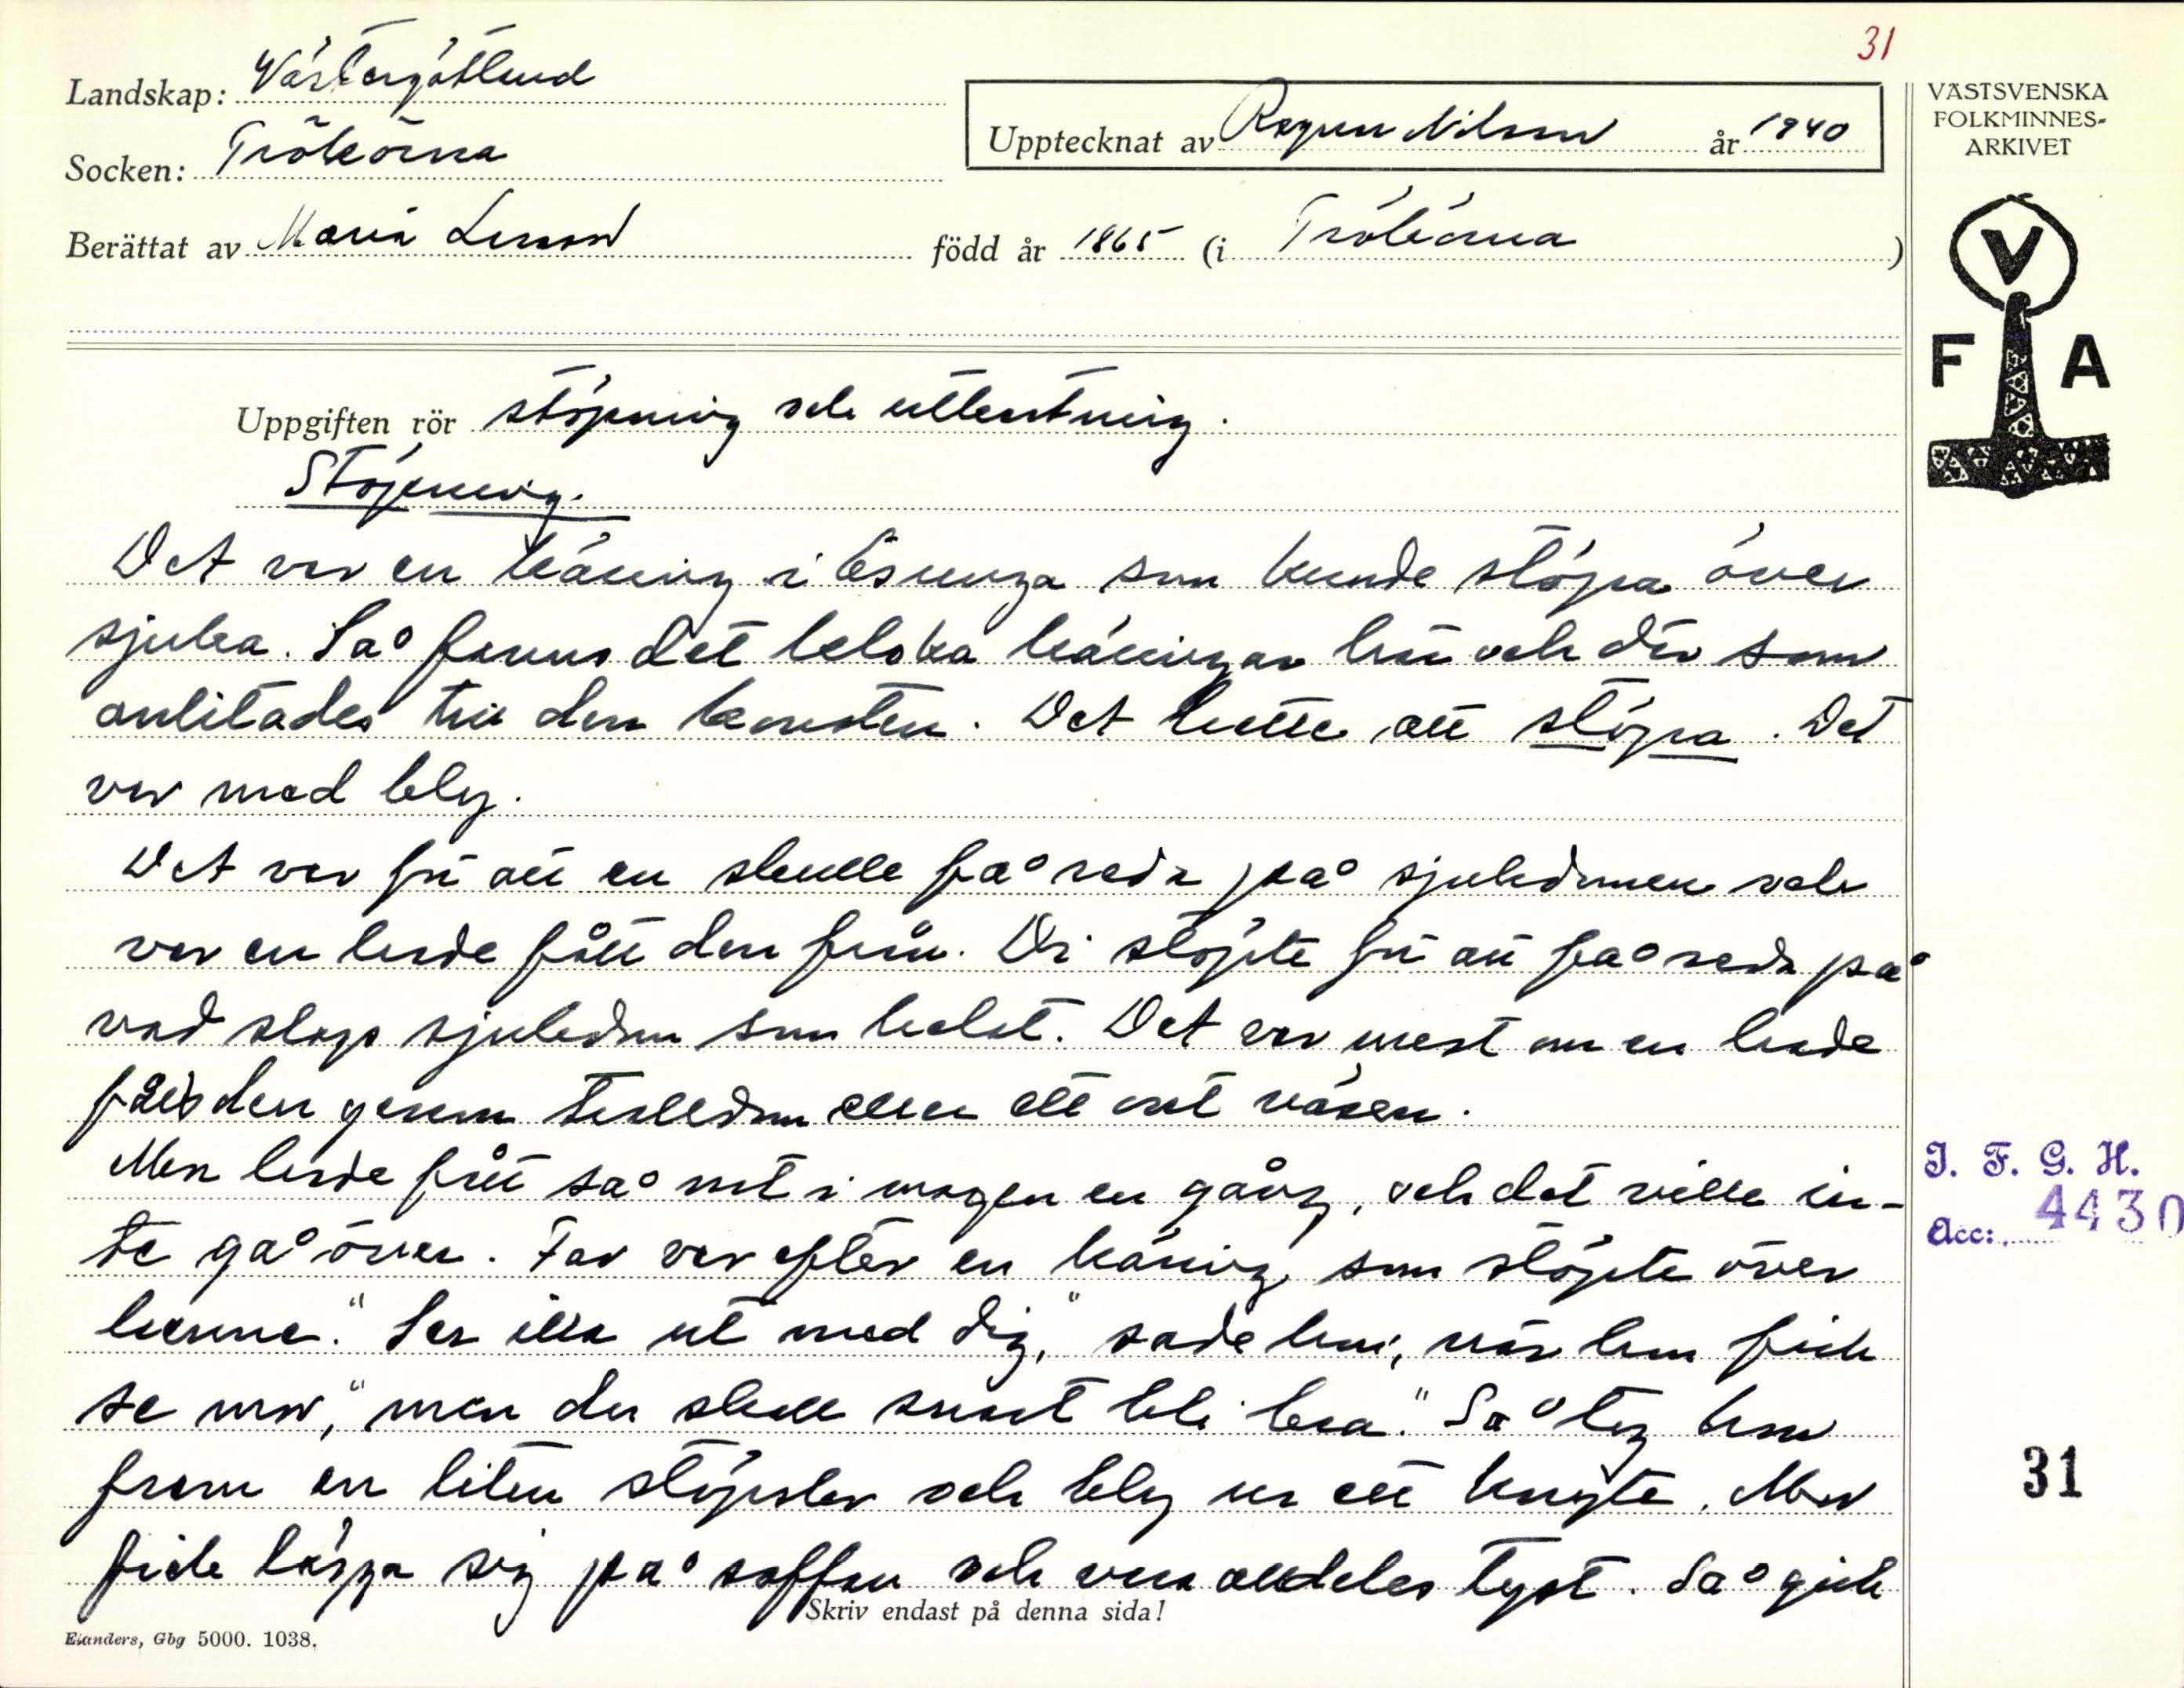 31
Landskap: Västergötland
Socken: Trökörna
Upptecknat av Ragnar Nilsson år 1940
Berättat av Maria Larsson född år 1865 (i Trökörna)
VÄSTSVENSKA
FOLKMINNES-
ARKIVET
V
F A
Uppgiften rör stöpning och
Stöpning.
Det var en käring i Esunga som kunde stöpa över
sjuka. Så fanns det kloka käringar här och där som
anlitades till den konsten. Det hette att stöpa. Det
var med bly.
Det var för att en skulle få reda på sjukdomen och
var en hade fått den från. Di stöpte för att få reda på
vad slags sjukdom som helst. Det var mest om en hade
fått den genom trolldom eller ett ont väsen.
Mor hade fått så ont i magen en gång, och det ville in-
te gå över. Far var efter en käring som stöpte över
henne. "Ser illa ut med dig," sade hon, när hon fick
se mor, "men du skall snart bli bra." Så tog hon
fram en liten stöpslev och bly ur ett knyte. Mor
fick lägga sig på soffan och vara alldeles tyst. Så gick
Skriv endast på denna sida!
Elanders, Gbg 5000. 1038.
I. F. G. H.
Acc: 4430
31